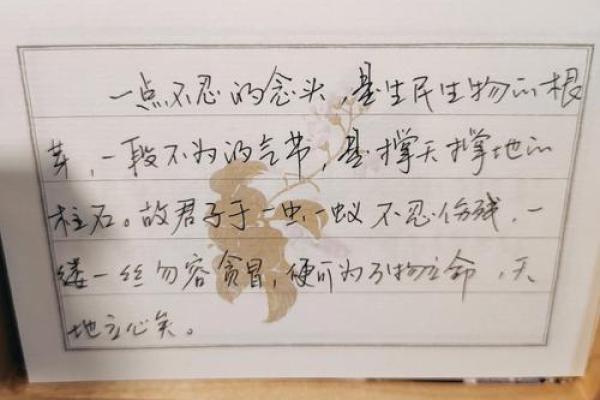 一点不忍的念头，是生民生物的根
芽，一段不为的气节，是撑天撑地的
柱石。故君子于一虫一蚁不忍伤残，一
缕一丝勿容贪冒，便可为万物立命，天
地立心矣。